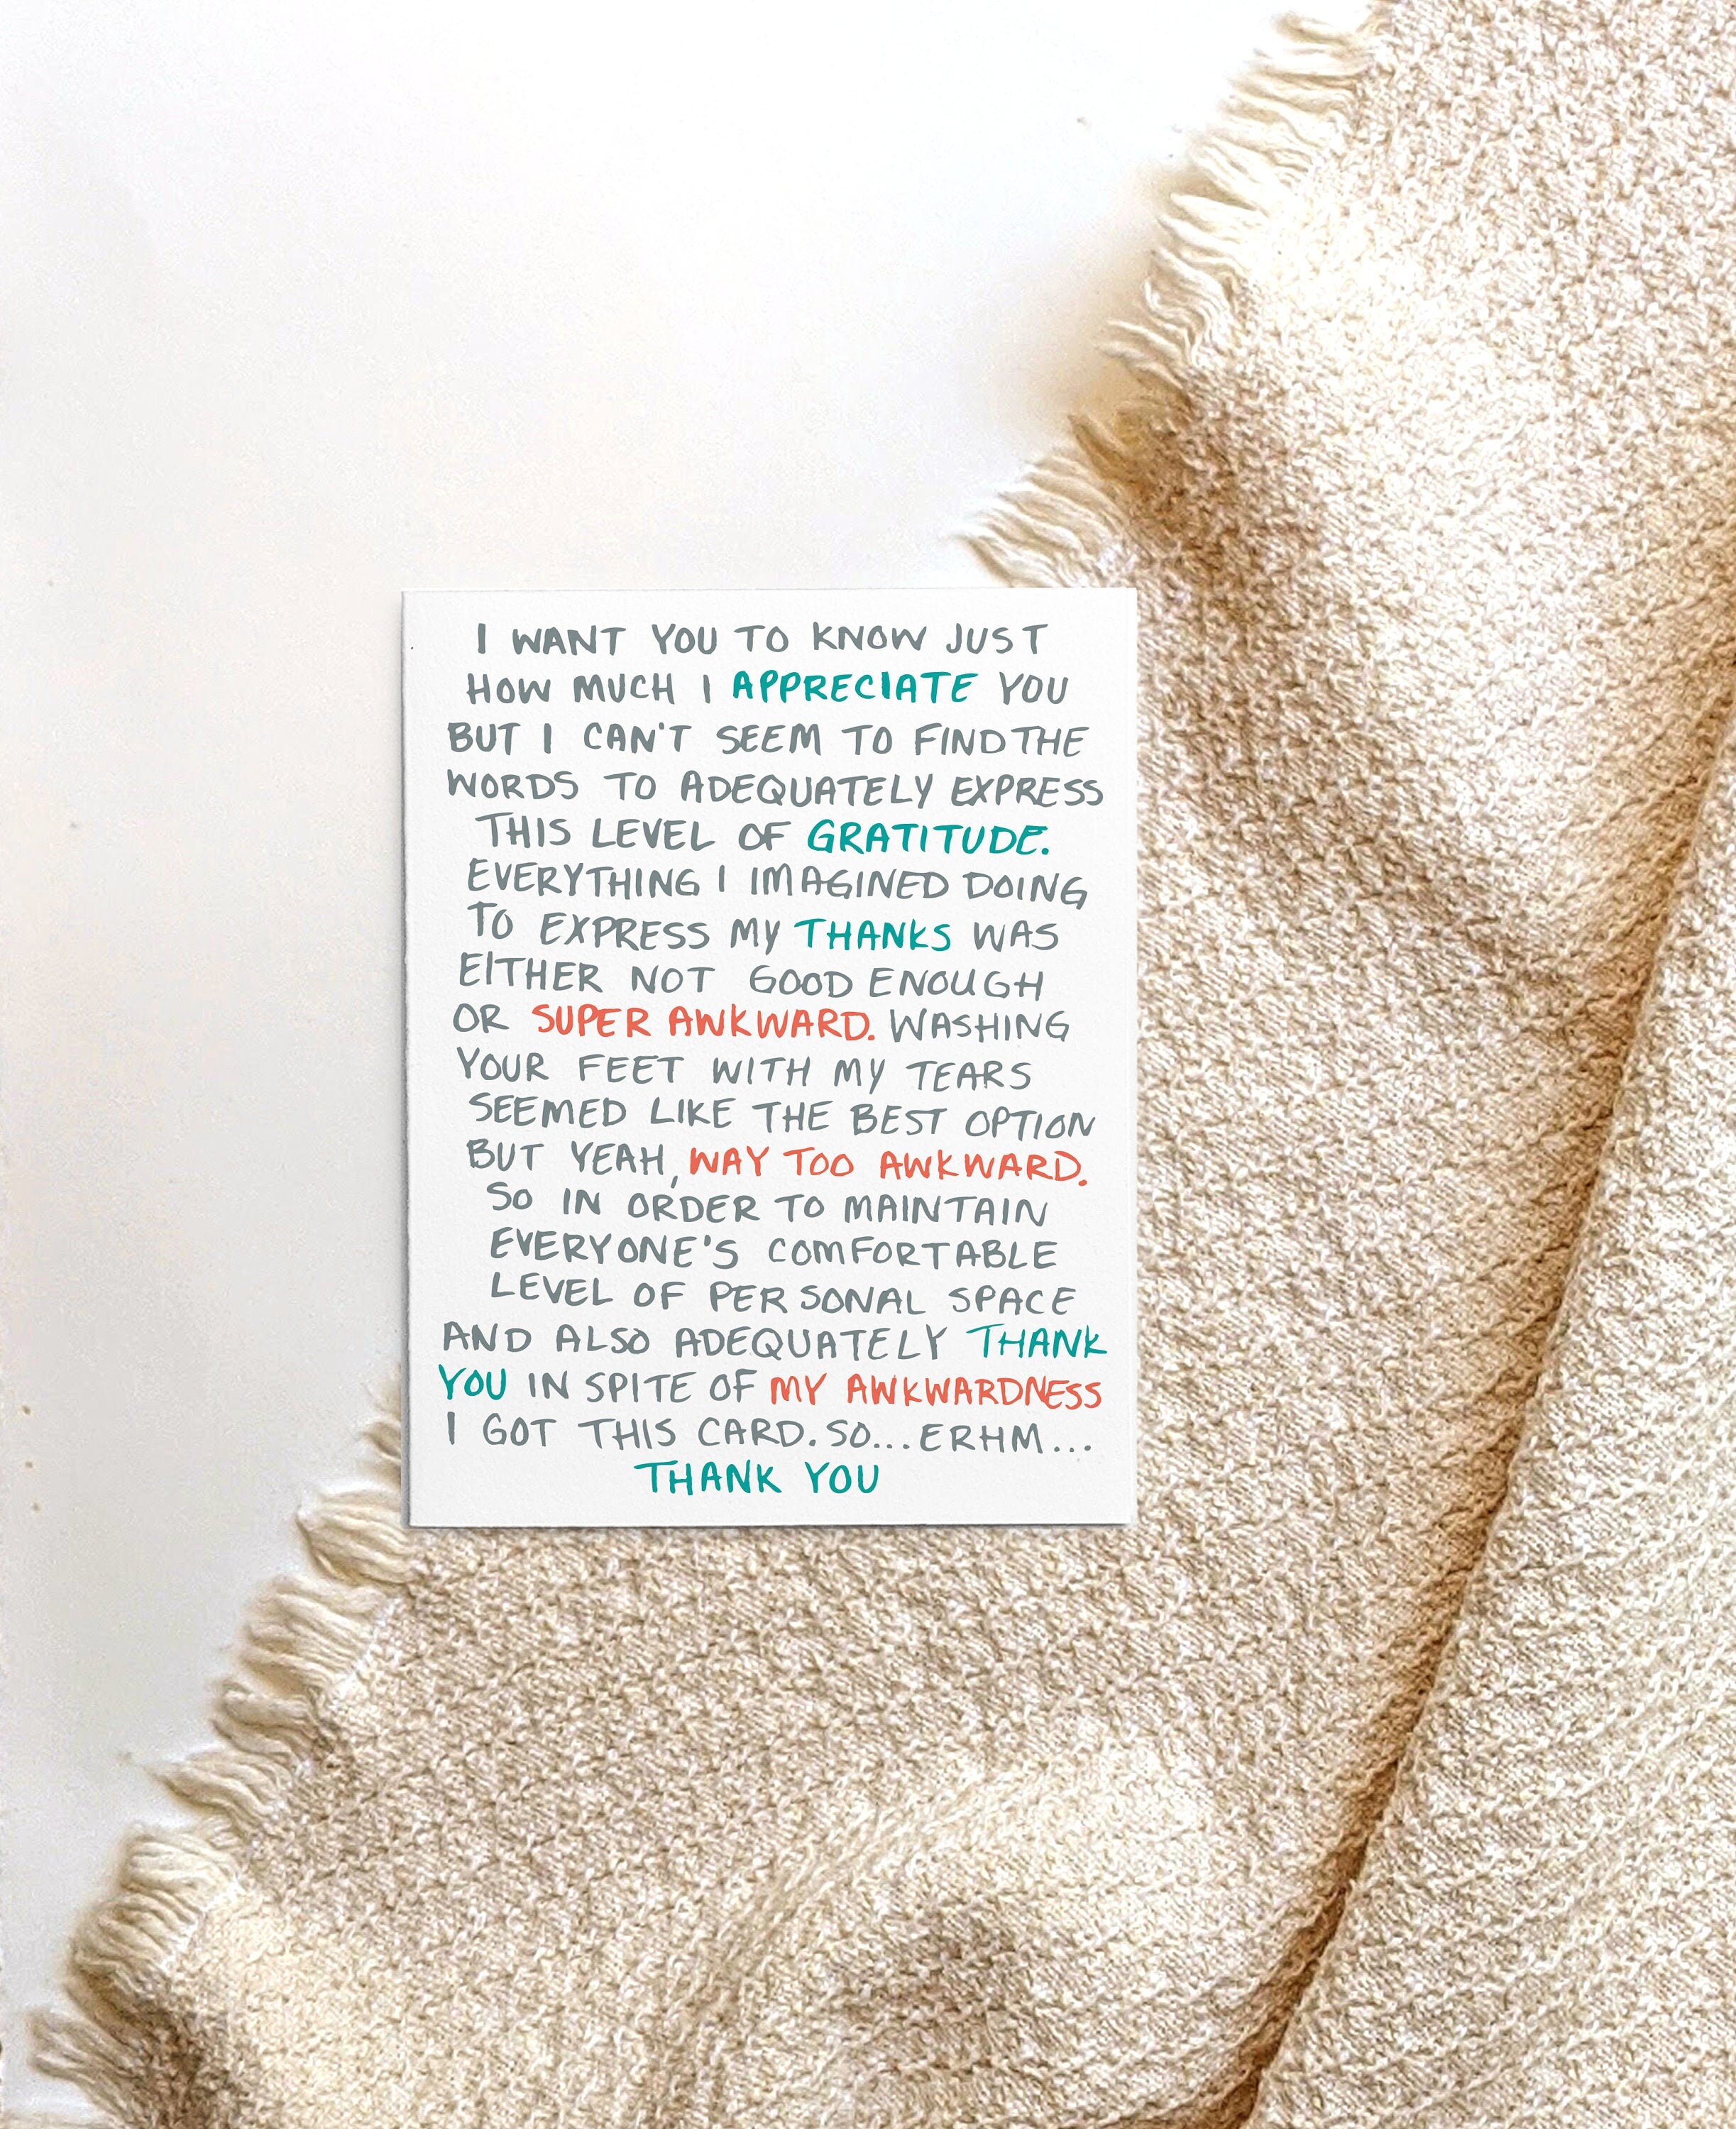 I WANT YOU TO KNOW JUST
HOW MUCH I APPRECIATE YOU
BUT I CAN'T SEEM TO FIND THE
WORDS TO ADEQUATELY EXPRESS
THIS LEVEL OF GRATITUDE.
EVERYTHING I IMAGINED DOING
TO EXPRESS MY THANKS WAS
EITHER NOT GOOD ENOUGH
OR SUPER AWKWARD. WASHING
YOUR FEET WITH MY TEARS
SEEMED LIKE THE BEST OPTION
BUT YEAH, WAY TOO AWKWARD.
SO IN ORDER TO MAINTAIN
EVERYONE'S COMFORTABLE
LEVEL OF PERSONAL SPACE
AND ALSO ADEQUATELY THANK
YOU IN SPITE OF MY AWKWARDNESS
I GOT THIS CARD. SO...ERHM...
THANK YOU